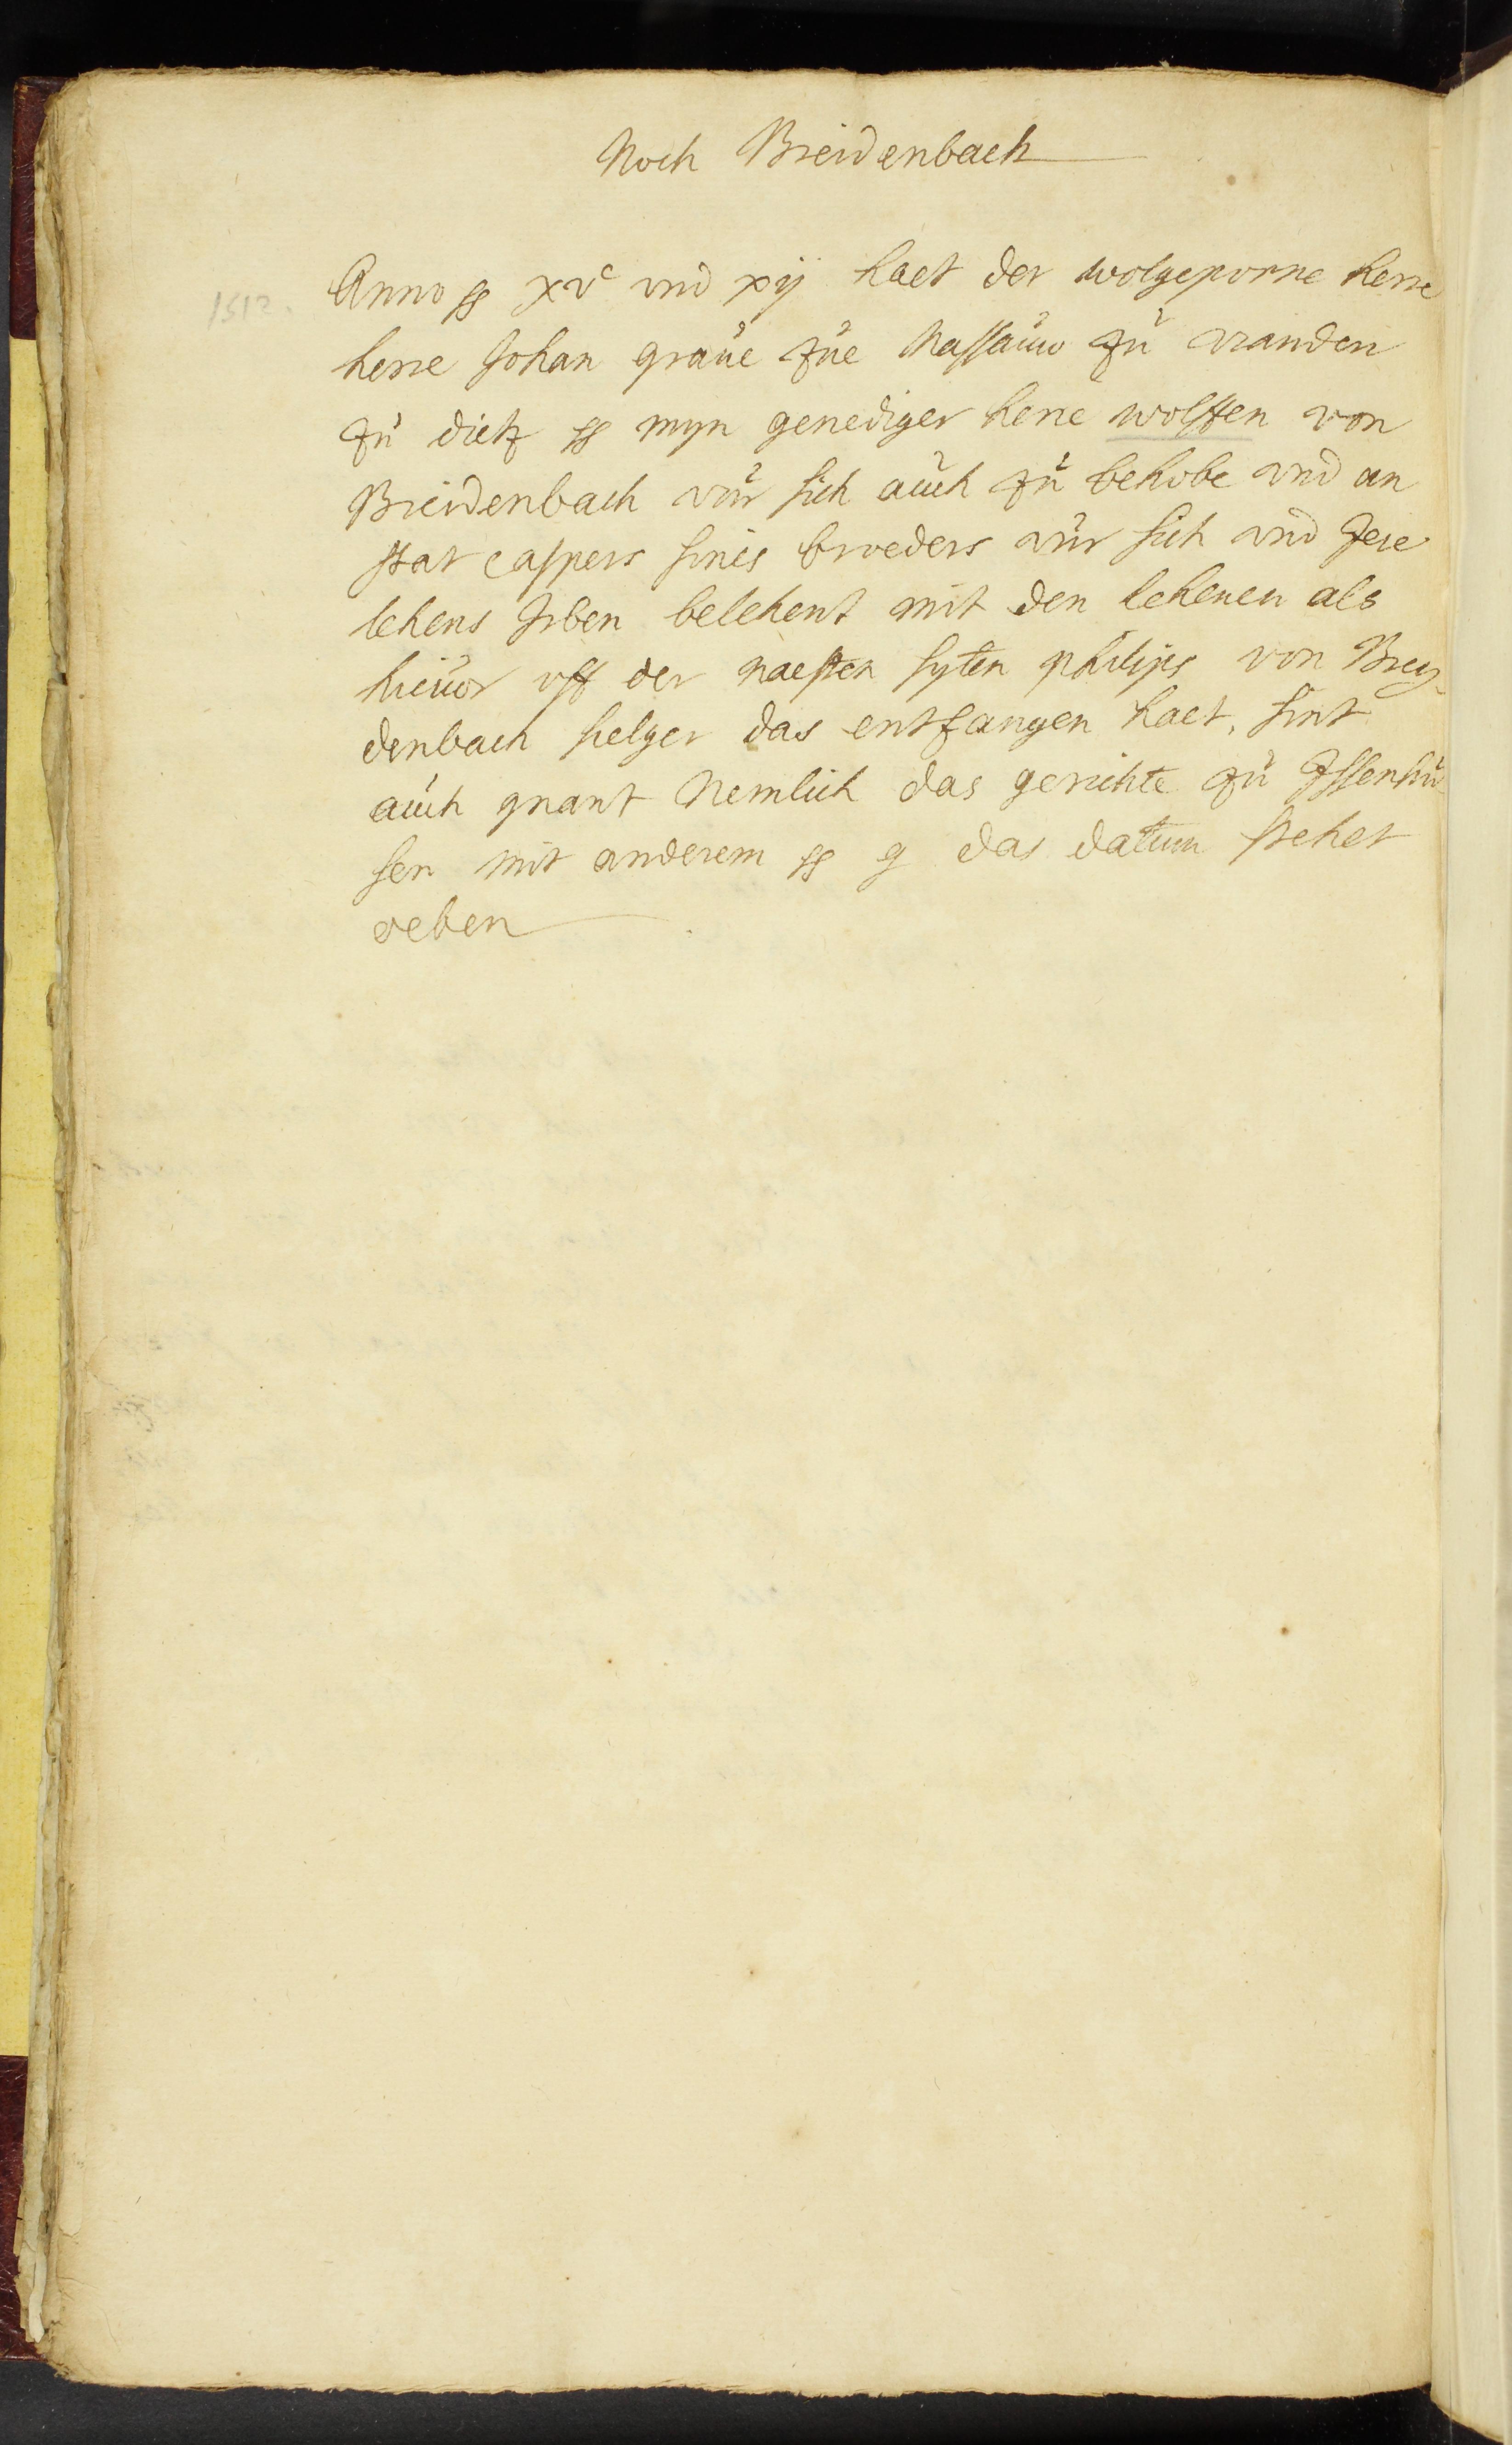 Noch Breidenbach
1512.
Anno ꝛc xvc vnd xij haet der wolgeporne herre
herre Johan graue zue Nassauw zu vianden
zu dietz ꝛc myn genediger herre wolffen von
Breidenbach vur sich auch zu behobe vnd an
stat caspers sines broeders vur sich vnd Jere
lehens Erben belehent mit den lehenen als
hieuor vff der naesten syten philips von Brey-
denbach sielger das entfangen haet, sint
auch gnant Nemlich das gerichte zu Jssenhu-
sen mit anderem ꝛc g das datum stehet
oeben